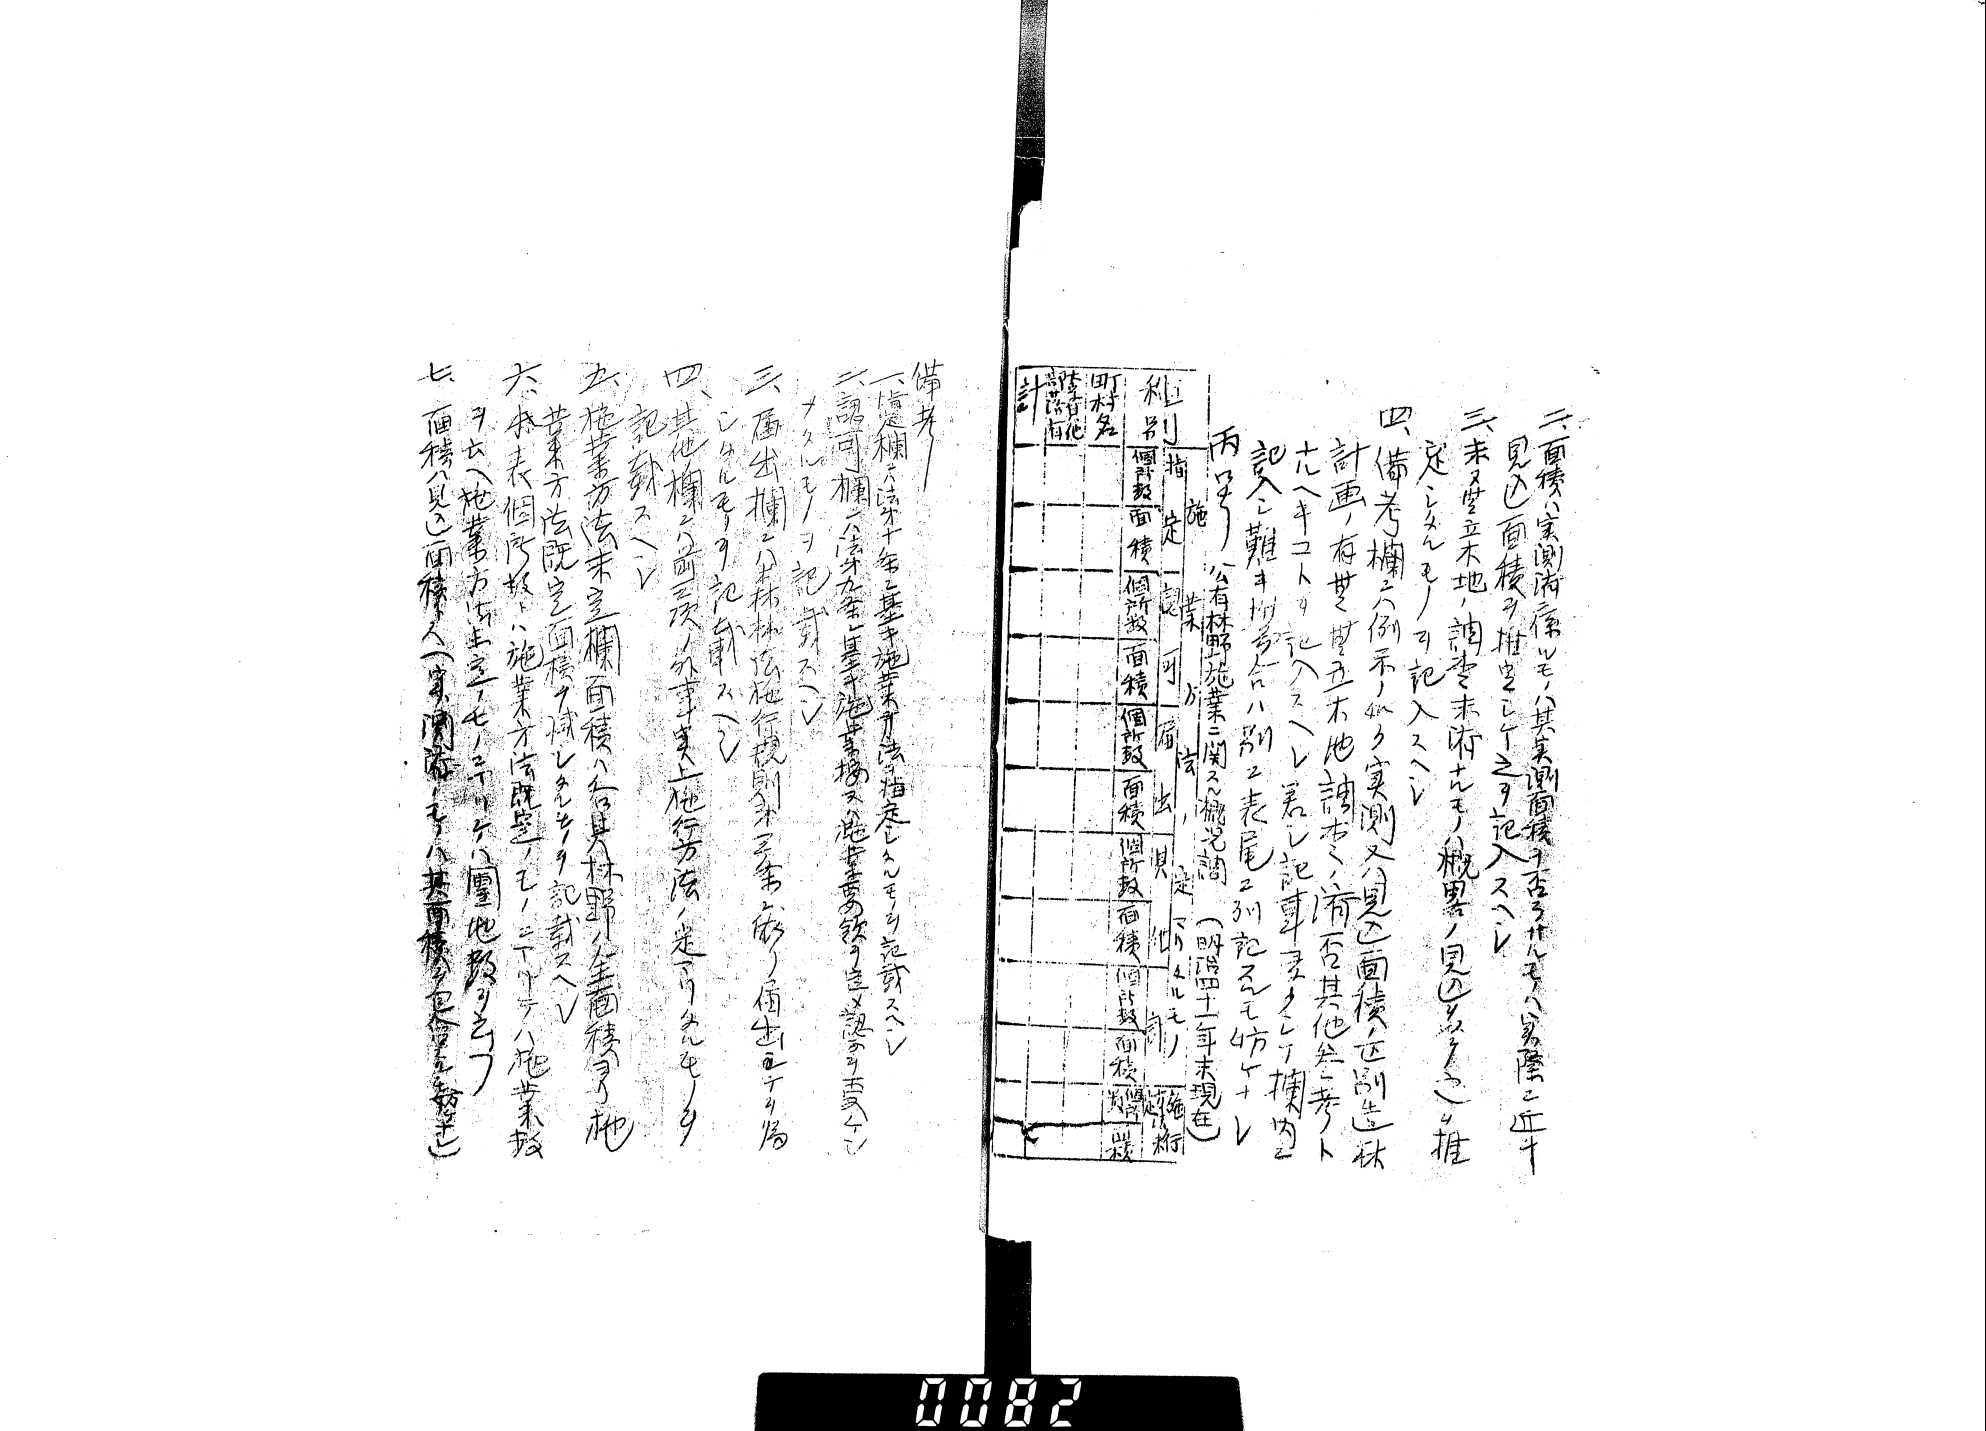 二、面積ハ実測済ニ係ルモノハ其実測面積ヲ否ラサルモノハ実際ニ近キ
見込面積ヲ推定シテ之ヲ記入スヘシ
三、未立木地ノ調査未済ナルモノハ概畧ノ見込ニヨリ之ヲ推
定シタルモノヲ記入スヘシ
四、備考欄ニハ例示ノ如ク実測又ハ見込面積ノ区別造林
計画ノ有無無立木地調査ノ済否其他参考ト
ナルヘキコトヲ記入スヘシ若シ記事多クシテ欄内ニ
記入シ難キ場合ハ別ニ表尾ニ列記スルモ妨ケナシ
丙号 公有林野施業ニ関スル概況調 (明治四十一年末現在)
種別
施業方法ノ定マリタルモノ
指定
認可
届出
其他
計
個所数 面積 個所数 面積 個所数 面積 個所数 面積 個所数 面積
個所数 面積
町村名
計
備考
一、指定欄ニハ法第十条ニ基キ施業方法ヲ指定シタルモノヲ記載スヘシ
二、認可欄ニハ法第九条ニ基キ施業案又ハ施業要領ヲ定メ認可ヲ受ケ
タルモノヲ記載スヘシ
三、届出欄ニハ森林法施行規則第三条ニ依リ届出ヲナシ
タルモノヲ記載スヘシ
四、其他欄ニハ前三項ノ外事実上施行方法ノ定マリタルモノヲ
記載スヘシ
五、施業方法未定欄面積ハ各其林野ノ全面積ヨリ施
業方法既定面積ヲ減シタルモノヲ記載スヘシ
六、本表個所数トハ施業方法既定ノモノニアリテハ施業数
ヲ云ヘ施業方法未定ノモノニアリテハ団地数ヲ云フ
七、面積ハ見込面積トス(実測済ノモノハ其面積ヲ